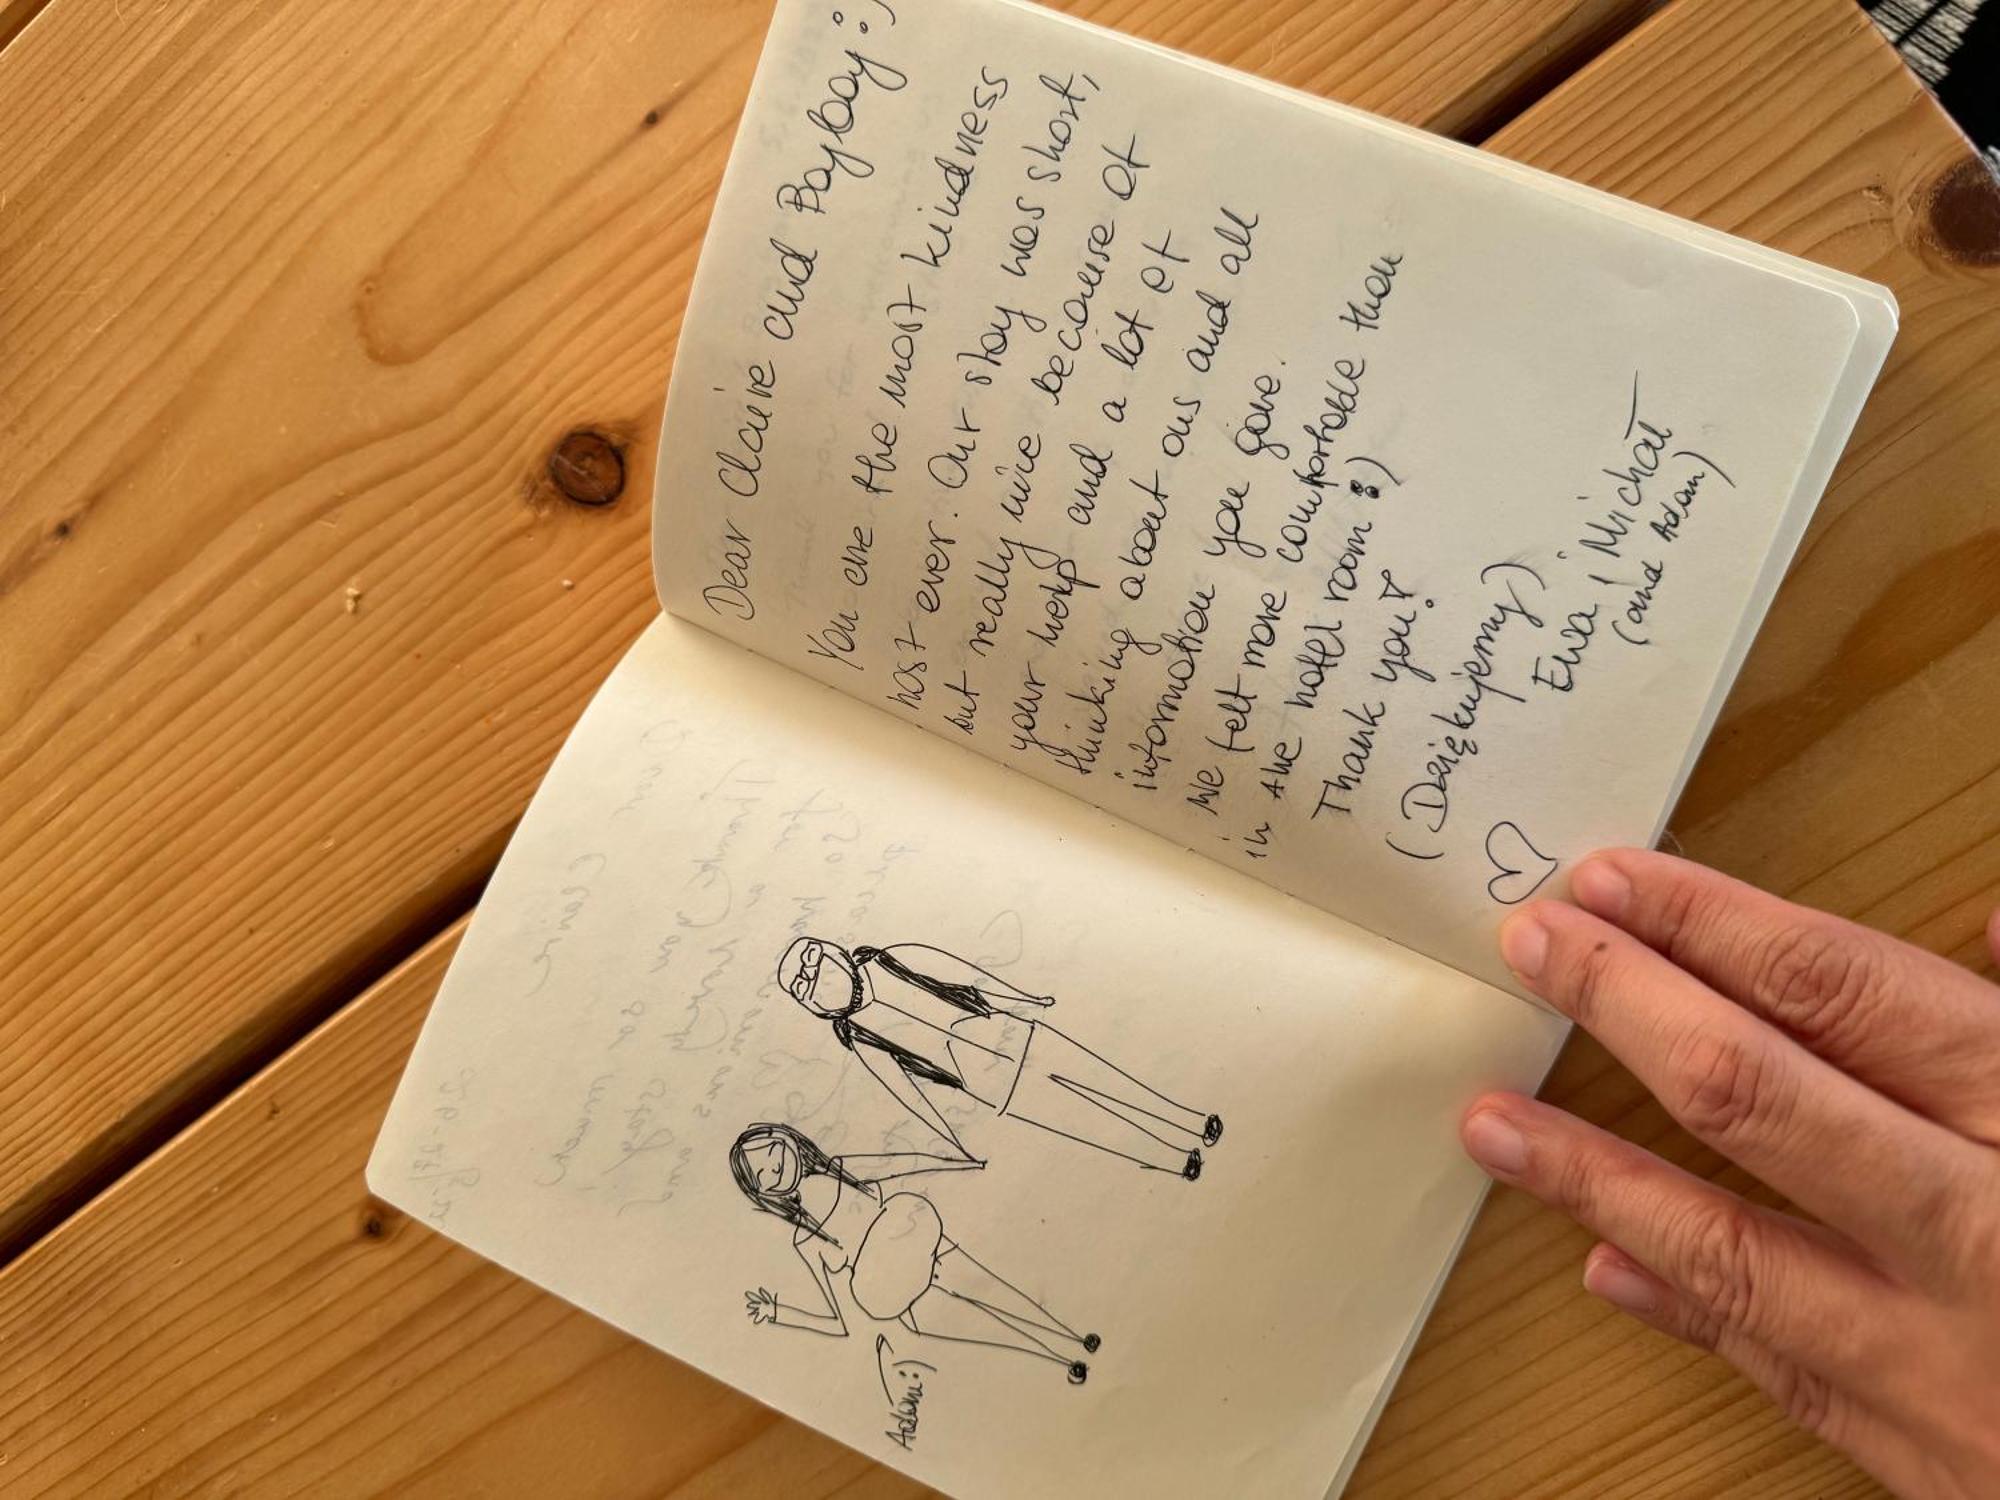 Dear Claire and Payboy :)
You are the most kindness
host ever. Our stay was short,
but really nice because of
your help and a lot of
thinking about ous and all
information you gave.
We felt more comfortable than
in the hotel room :)
Thank you!
(Dziękujemy)
Ewa i Michał
(and Adam)
Adam :)